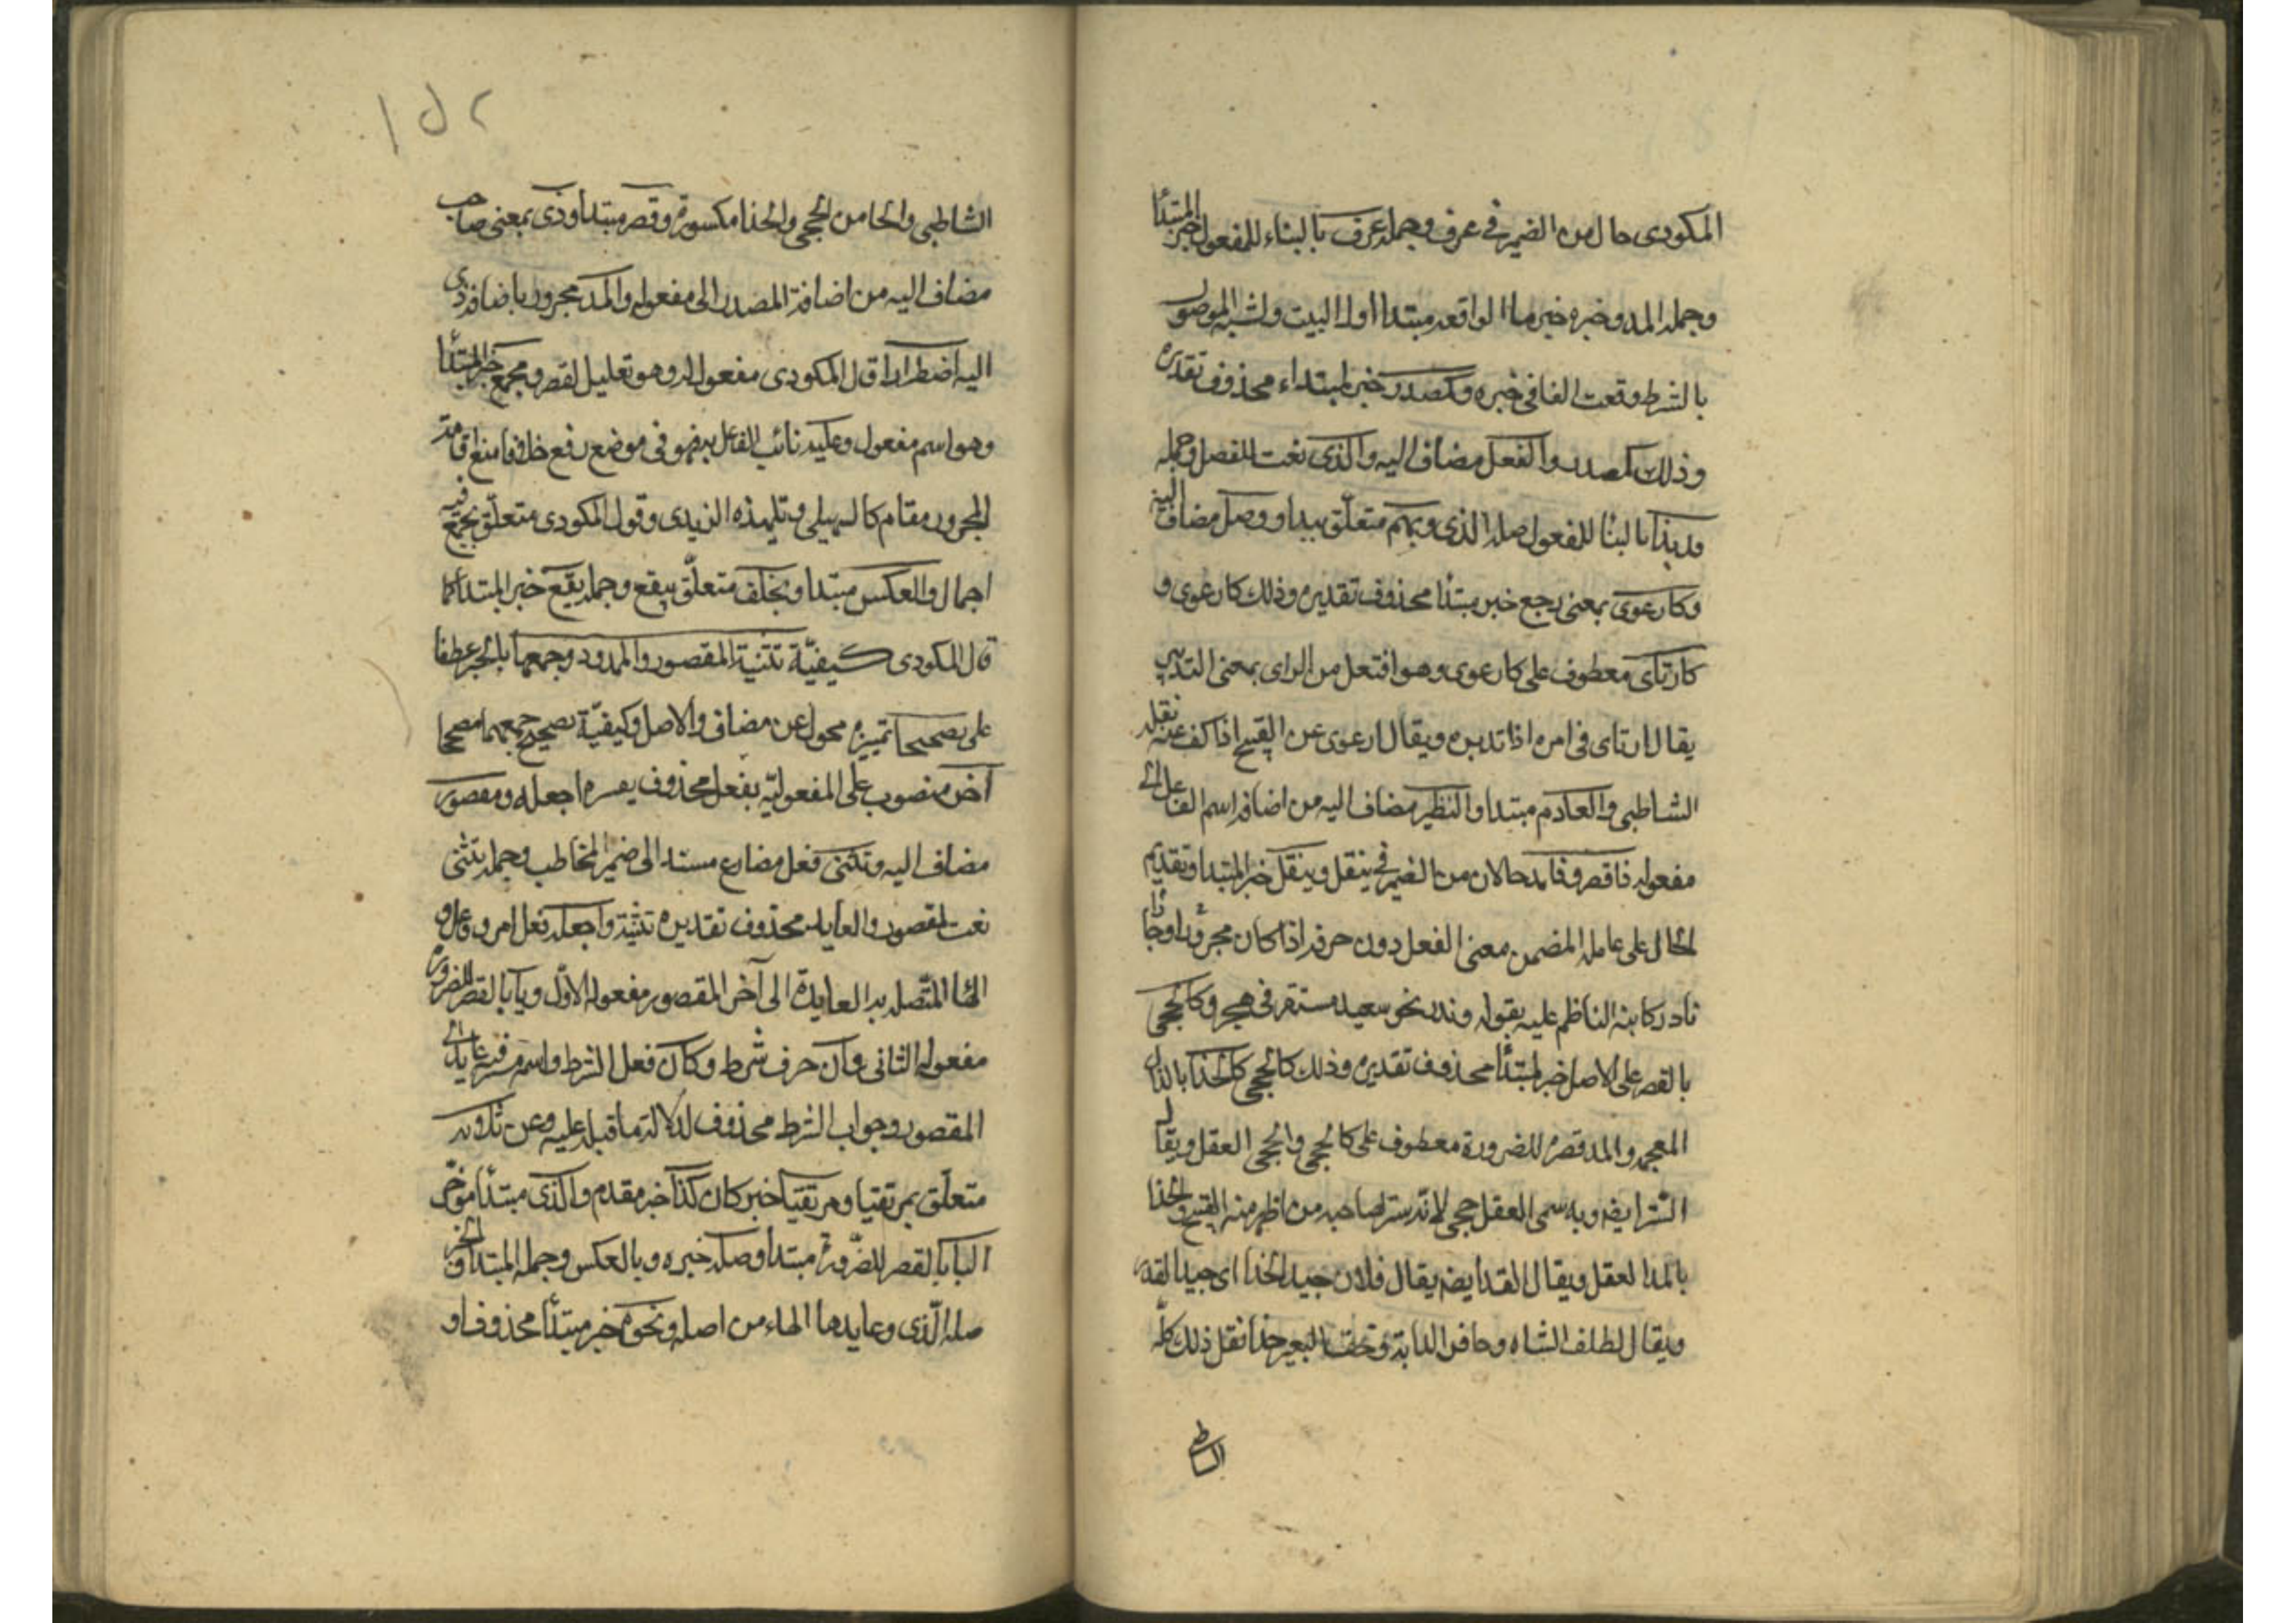 المكودى حال من الضمير فى عرف وجملة عرف بالبناء للمفعول خبر المبتدأ
وجملة المد وخبره خبر ما الواقعة مبتدا اول البيت ولشبه الموصول
بالشرط وقعت الفا فى خبره وكمصدر خبر لمبتداء محذوف تقديره
وذلك كمصدر والفعل مضاف اليه والذى نعت للفعل وجملة
قد بدئا بالبنا للمفعول صلة الذى وبهمز متعلق ببدا ووصل مضاف اليه
وكارعوى بمعنى رجع خبر مبتدأ محذوف تقديره وذلك كارعوى و
كارتاى معطوف على كارعوى وهو افتعل من الراى بمعنى التدبير
يقال ارتاى فى امره اذا تدبره ويقال ارعوى عن القبيح اذا كف عنه نقله
الشاطبى والعادم مبتدا والنظير مضاف اليه من اضافة اسم الفاعل الى
مفعوله فا قصر وفا مد حالان من الضمير فى ينقل وينقل خبر المبتدا وتقديم
الحال على عامله المضمن معنى الفعل دون حرفه اذا كان مجرورا او جارا
نادر كما نبه الناظم عليه بقوله وندر نحو سعيد مستقر فى هجر وكالحجى
بالقصر على الاصل خبر لمبتدأ محذوف تقديره وذلك كالحجى كالحذا بالذال
المعجمه والمد قصره للضرورة معطوف على كالحجى والحجى العقل ويقال
الستر ايضه وبه سمى العقل حجى لانه ستر لصاحبه من اظهر منه القبيح والحذا
بالمد العقل ويقال القد ايضه يقال فلان جيد الحذا اى جيد القد
ويقال لظلف الشاه وحافر الدابة وخف البعير حذا نقل ذلك كله
الشاطبى
الشاطبى والحا من الحجى والحذا مكسورة وقصر مبتدا وذى بمعنى صاحب
مضاف اليه من اضافة المصدر الى مفعوله والمد مجرور باضافة ذى
اليه اضطرارا قال المكودى مفعول له وهو تعليل لقصر ومجمع خبر المبتدأ
وهو اسم مفعول وعليه نائب الفاعل به فهو فى موضع رفع خلافا لمنع اقامة
المجرور مقامه كالسهيلى وتلميذه الزيدى وقول المكودى متعلق بمجمع فيه
اجمال والعكس مبتدا وبخلف متعلق بيقع وجملة يقع خبر المبتدأ كما
قال المكودى كيفيّة تثنية المقصور والممدود وجمعهما بالجر عطفا
على تصحيحا تمييز محول عن مضاف والاصل وكيفيّة تصحيح جمعهما مصححا
آخر منصوب على المفعوليّه بفعل محذوف يفسره اجعله ومقصور
مضاف اليه وتثنى فعل مضارع مسند الى ضمير المخاطب وجملة تثنى
نعت لمقصور والعايد محذوف تقديره تثنيه واجعله فعل امر وفاعل و
الها المتّصلة به العايدة الى آخر المقصور مفعوله الاوّل ويا بالقصر للضرورة
مفعوله الثانى وان حرف شرط وكان فعل الشرط واسمه مستتر فيه عايد الى
المقصور وجواب الشرط محذوف لدلالة ما قبله عليه وعن ثلاثة
متعلّق بمرتقيا ومرتقيا خبر كان كذا خبر مقدم والذى مبتدأ مؤخر
اليا بالقصر للضّرورة مبتدا وصلة خبره وبالعكس وجملة المبتدا والخبر
صلة الّذى وعايدها الهاء من اصله ونحو خبر مبتدأ محذوف او